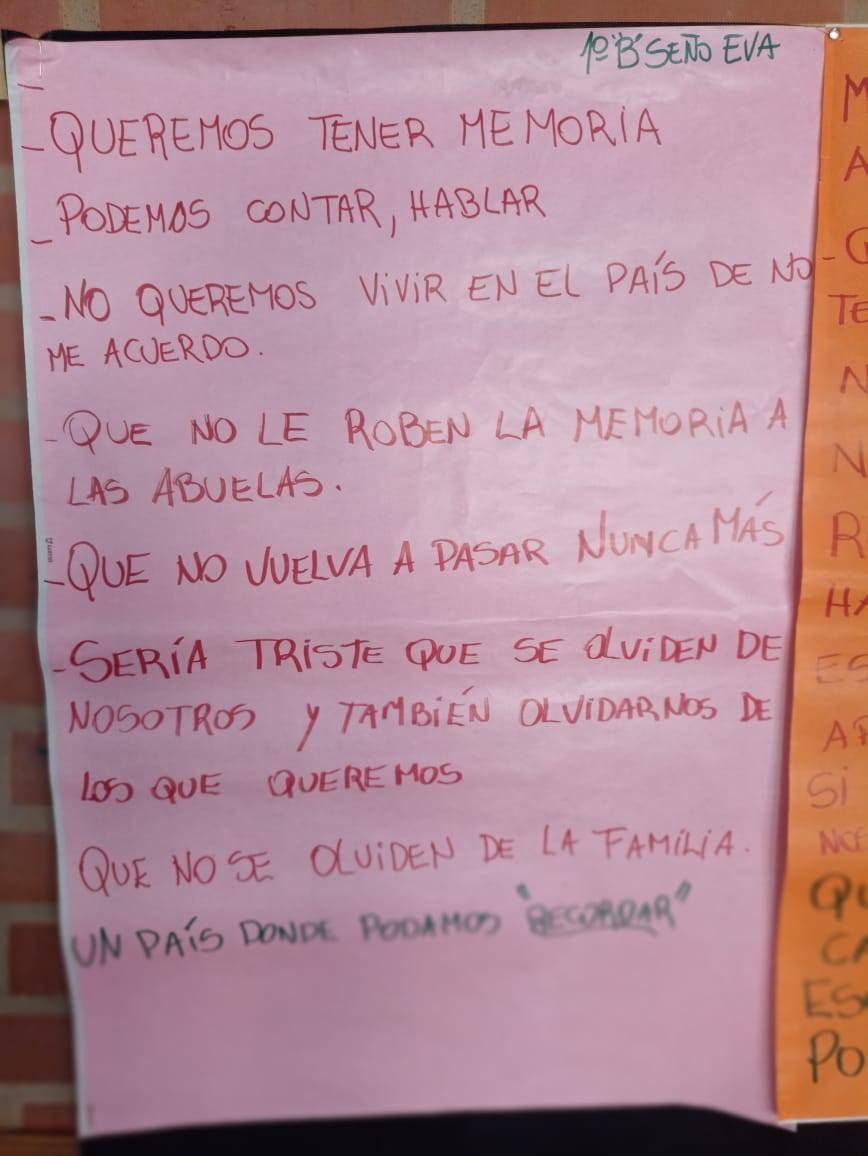 1º "B" SEÑO EVA
- QUEREMOS TENER MEMORIA
- PODEMOS CONTAR, HABLAR
- NO QUEREMOS VIVIR EN EL PAÍS DE NO
ME ACUERDO.
- QUE NO LE ROBEN LA MEMORIA A
LAS ABUELAS.
- QUE NO VUELVA A PASAR NUNCA MÁS
- SERÍA TRISTE QUE SE OLVIDEN DE
NOSOTROS Y TAMBIÉN OLVIDARNOS DE
LOS QUE QUEREMOS
QUE NO SE OLVIDEN DE LA FAMILIA.
UN PAÍS DONDE PODAMOS "RECORDAR"